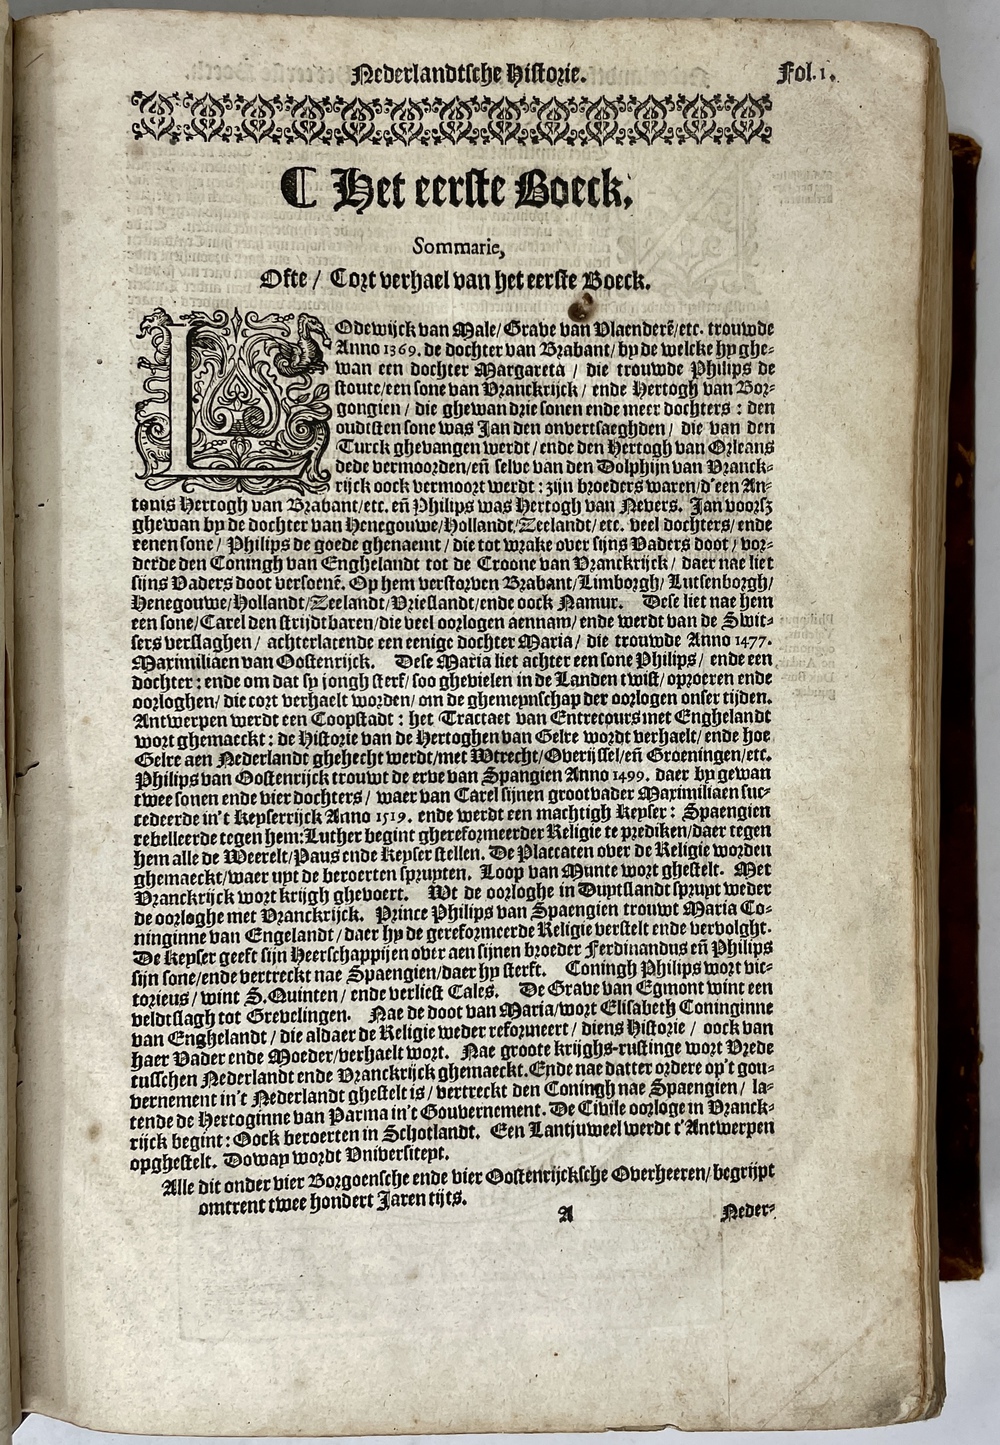 Nederlandtsche Historie. Fol. 1.
¶ Het eerste Boeck.
Sommarie,
Ofte / Cort verhael van het eerste Boeck.
LOdewijck van Male / Grave van Vlaenderē / etc. trouwde
Anno 1369. de dochter van Brabant / by de welcke hy ghe-
wan een dochter Margareta / die trouwde Philips de
stoute / een sone van Vranckrijck / ende Hertogh van Bor-
gongien / die ghewan drie sonen ende meer dochters : den
oudtsten sone was Jan den onvertsaeghden / die van den
Turck ghevangen werdt / ende den Hertogh van Orleans
dede vermoorden / eñ selve van den Dolphijn van Vranck-
rijck oock vermoort werdt : zijn broeders waren / d'een An-
tonis Hertogh van Brabant / etc. eñ Philips was Hertogh van Nevers. Jan voorsz
ghewan by de dochter van Henegouwe / Hollandt / Zeelandt / etc. veel dochters / ende
eenen sone / Philips de goede ghenaemt / die tot wrake over sijns Vaders doot / vor-
derde den Coningh van Enghelandt tot de Croone van Vranckrijck / daer nae liet
sijns Vaders doot versoenē. Op hem verstorven Brabant / Limborgh / Lutsenborgh /
Henegouwe / Hollandt / Zeelandt / Vrieslandt / ende oock Namur. Dese liet nae hem
een sone / Carel den strijdtbaren / die veel oorlogen aennam / ende werdt van de Swit-
sers verslaghen / achterlatende een eenige dochter Maria / die trouwde Anno 1477.
Maximiliaen van Oostenrijck. Dese Maria liet achter een sone Philips / ende een
dochter : ende om dat sy jongh sterf / soo ghevielen in de Landen twist / oproeren ende
oorloghen / die cort verhaelt worden / om de ghemeynschap der oorlogen onser tijden.
Antwerpen werdt een Coopstadt : het Tractaet van Entrecours met Enghelandt
wort ghemaeckt : de Historie van de Hertoghen van Gelre wordt verhaelt / ende hoe
Gelre aen Nederlandt ghehecht werdt / met Wtrecht / Overijssel / eñ Groeningen / etc.
Philips van Oostenrijck trouwt de erve van Spangien Anno 1499. daer by gewan
twee sonen ende vier dochters / waer van Carel sijnen grootvader Maximiliaen suc-
cedeerde in't Keyserrijck Anno 1519. ende werdt een machtigh Keyser : Spaengien
rebelleerde tegen hem : Luther begint ghereformeerder Religie te prediken / daer tegen
hem alle de Weerelt / Paus ende Keyser stellen. De Placcaten over de Religie worden
ghemaeckt / waer uyt de beroerten spruyten. Loop van Munte wort ghestelt. Met
Vranckrijck wort krijgh ghevoert. Wt de oorloghe in Duytslandt spruyt weder
de oorloghe met Vranckrijck. Prince Philips van Spaengien trouwt Maria Co-
ninginne van Engelandt / daer hy de gereformeerde Religie verstelt ende vervolght.
De Keyser geeft sijn Heerschappijen over aen sijnen broeder Ferdinandus eñ Philips
sijn sone / ende vertreckt nae Spaengien / daer hy sterft. Coningh Philips wort vic-
torieus / wint S. Quinten / ende verliest Cales. De Grave van Egmont wint een
veldtslagh tot Grevelingen. Nae de doot van Maria / wort Elisabeth Coninginne
van Enghelandt / die aldaer de Religie weder reformeert / diens Historie / oock van
haer Vader ende Moeder / verhaelt wort. Nae groote krijghs-rustinge wort Vrede
tusschen Nederlandt ende Vranckrijck ghemaeckt. Ende nae datter ordere op't gou-
vernement in't Nederlandt ghestelt is / vertreckt den Coningh nae Spaengien / la-
tende de Hertoginne van Parma in't Gouvernement. De Civile oorloge in Vranck-
rijck begint : Oock beroerten in Schotlandt. Een Lantjuweel werdt t'Antwerpen
opghestelt. Doway wordt Vniversiteyt.
Alle dit onder vier Borgoensche ende vier Oostenrijcksche Overheeren / begrijpt
omtrent twee hondert Jaren tijts.
A Neder-